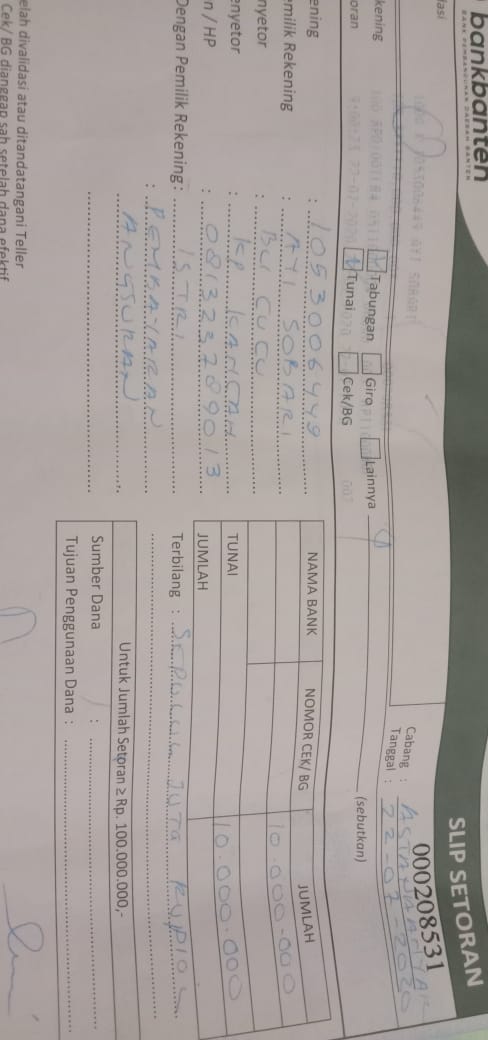 bankbanten
BANK PEMBANGUNAN DAERAH BANTEN
SLIP SETORAN
000208531
Cabang : ASTANAANYAR
Tanggal : 22-07-2020
dasi
kening
Tabungan Giro Lainnya (sebutkan)
oran
Tunai Cek/BG
ening : 1053006449
emilik Rekening : AYI SOBARI
nyetor : BU CUCU
enyetor : KP KANCAH
n / HP : 081323289013
Dengan Pemilik Rekening : ISTRI
: PEMBAYARAN
ANGSURAN
NAMA BANK NOMOR CEK/ BG JUMLAH
10.000.000
TUNAI
JUMLAH 10.000.000
Terbilang : SEPULUH JUTA RUPIAH
Untuk Jumlah Setoran ≥ Rp. 100.000.000,-
Sumber Dana :
Tujuan Penggunaan Dana :
elah divalidasi atau ditandatangani Teller
Cek/ BG dianggap sah setelah dana efektif